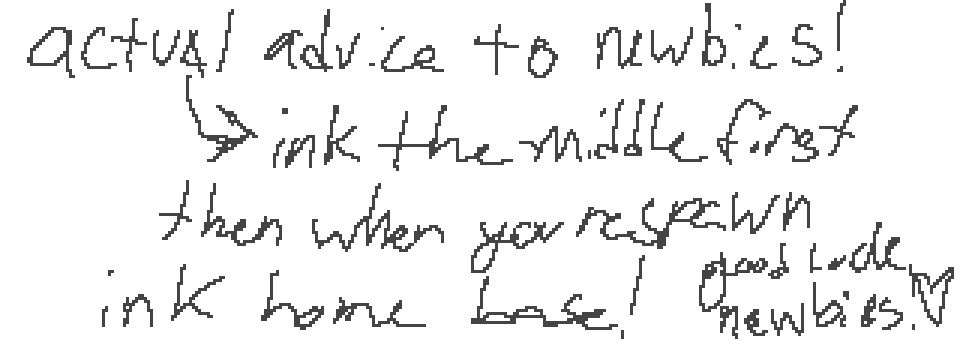 actual advice to newbies!
ink the middle first
then when you respawn
ink home base!
good luck
newbies.